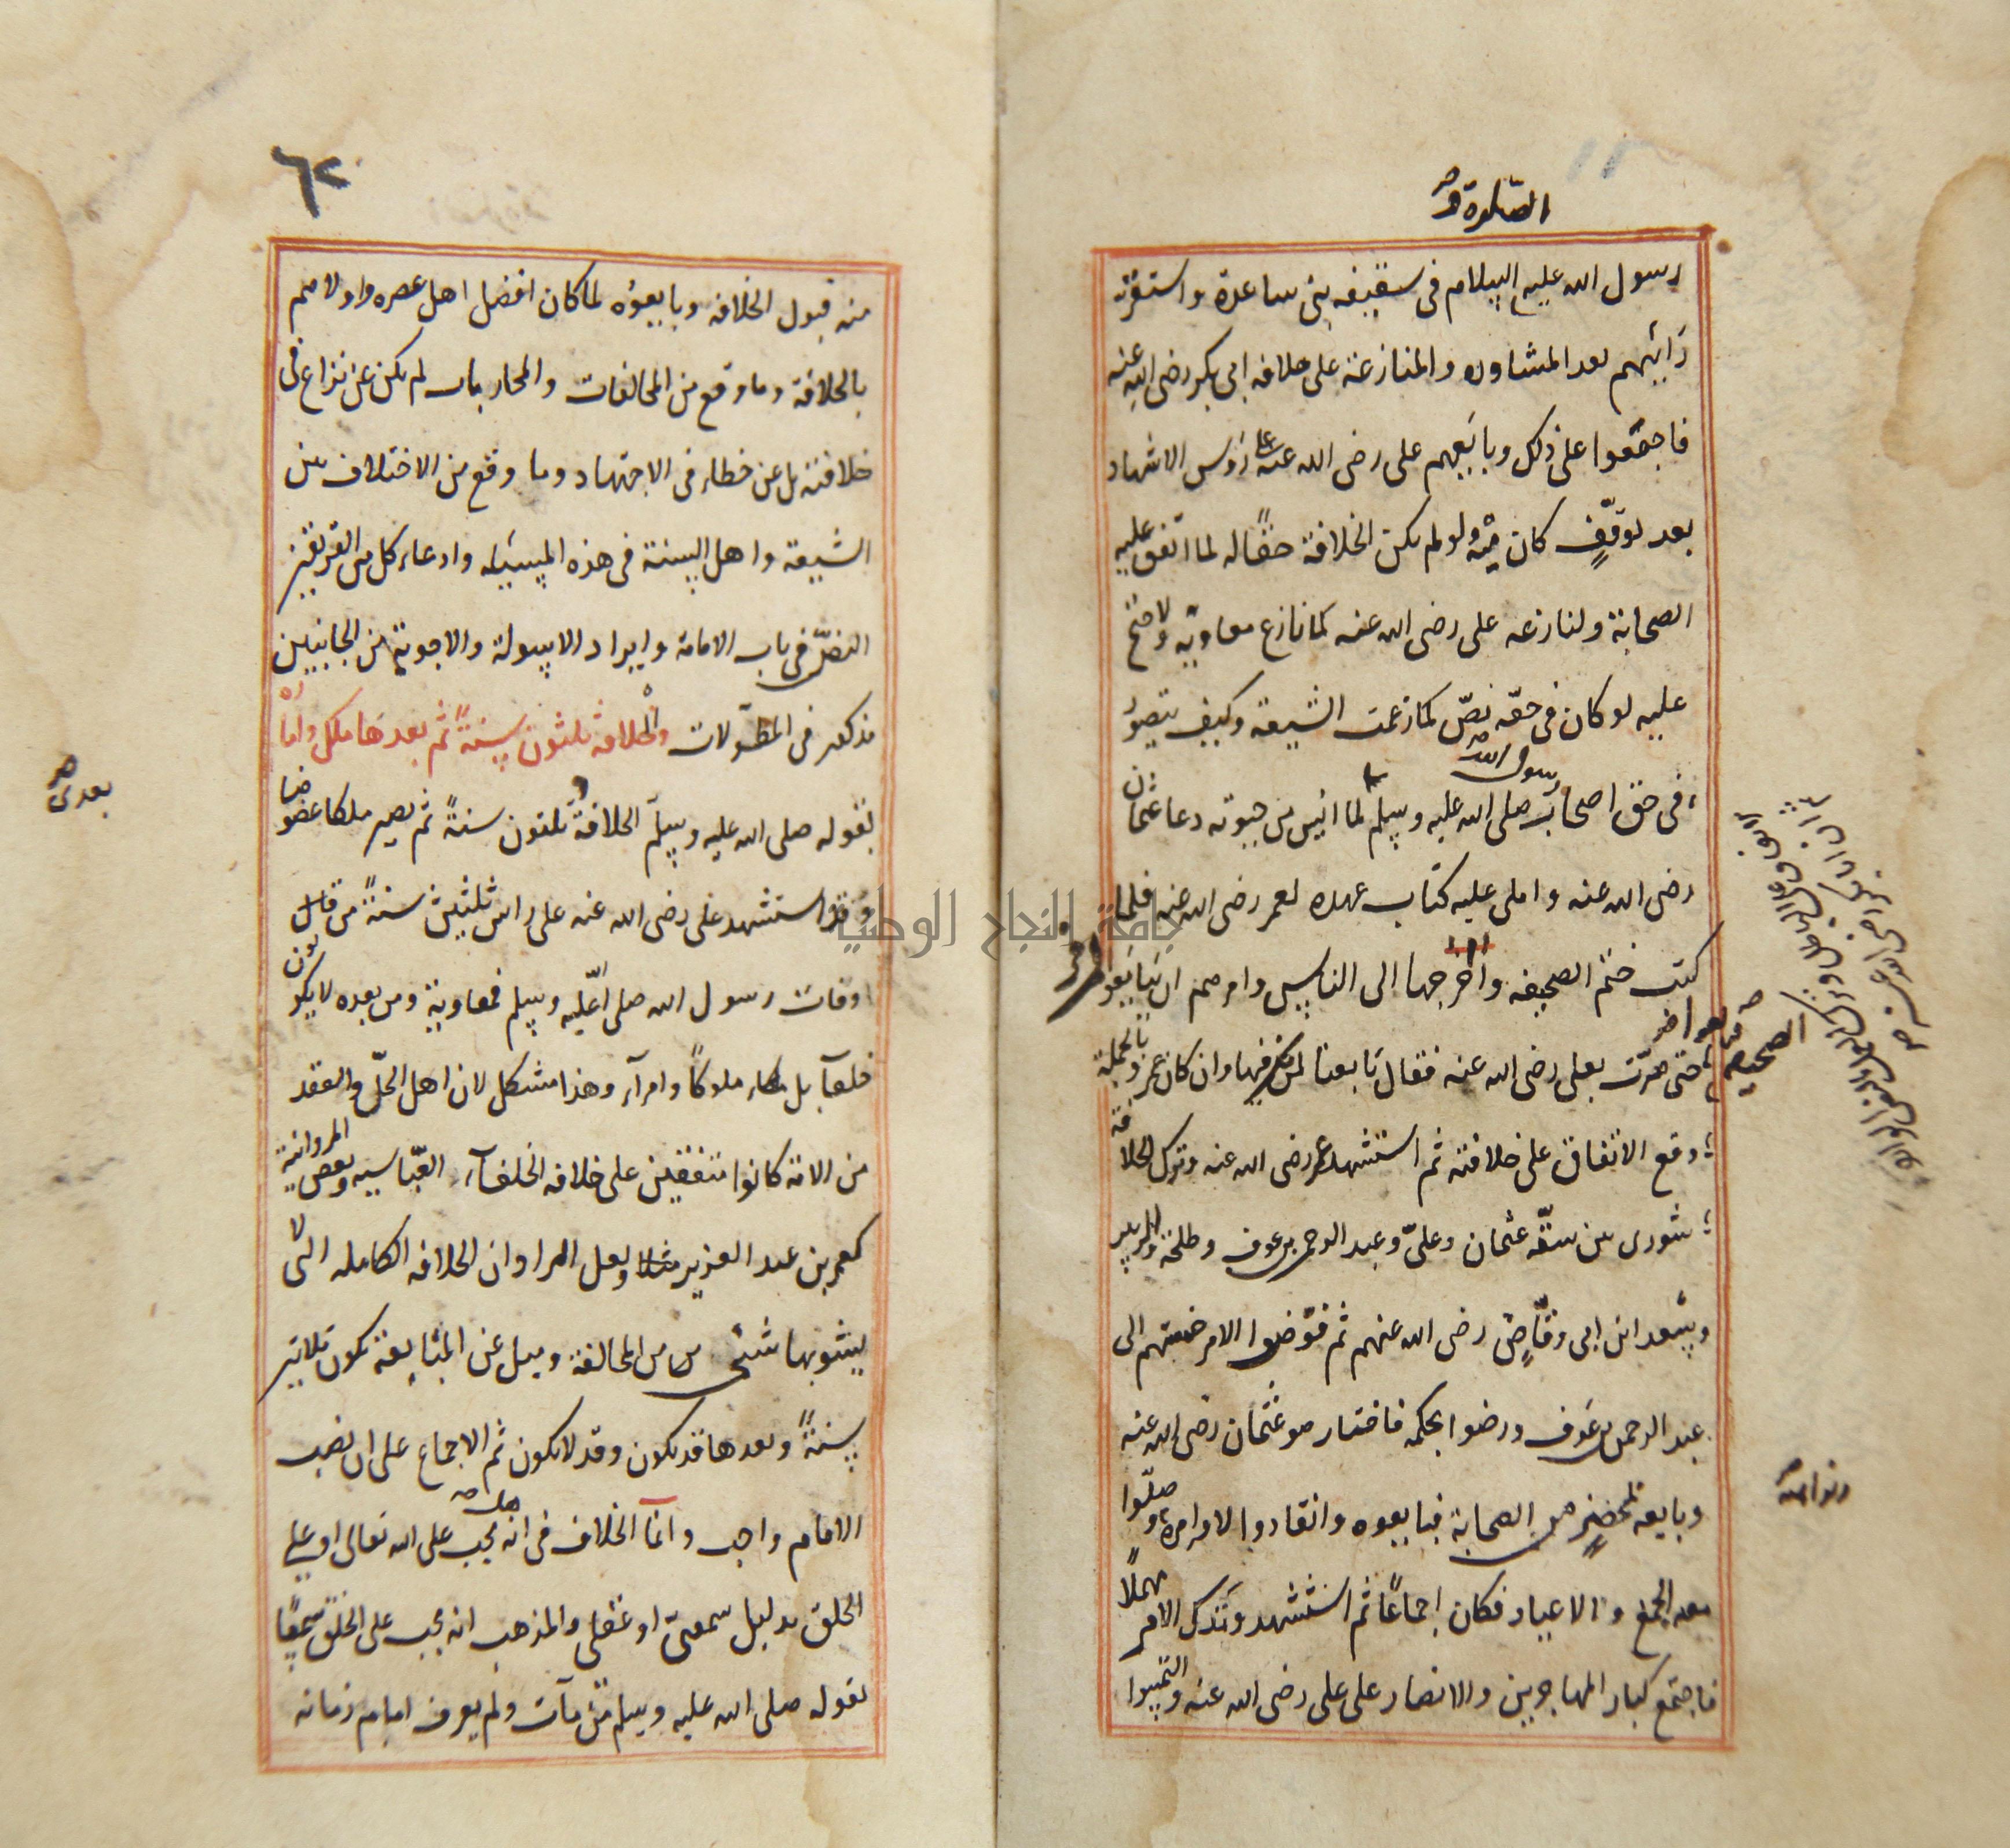 الصلوة و
رسول الله عليه السلام فى سقيفه بنى ساعدة واستقرت
رائيهم بعد المشاوره والمنازعة على خلافه ابى بكر رضى الله عنه
فاجمعوا على ذلك وبايعهم على رضى الله عنه على رؤس الاشهاد
بعد توقّفٍ كان منه ولو لم تكن الخلافة حقًا له لما اتفق عليه
الصحابة ولنازعه على رضى الله عنه كما نازع معاوية ولاحتج
عليه لو كان فى حقه نصّ كما زعمت الشيعة وكيف يتصور
فى حق اصحاب رسول الله صلى الله عليه وسلم لما ايس من حيوته دعا عثمان
رضى الله عنه واملى عليه كتاب عهده لعمر رضى الله عنه فلما
كتب ختم الصحيفه واخرجها الى الناس وامرهم ان يبايعوا لمن فى
الصحيفة فبايعوا حتى مرّت بعلى رضى الله عنه فقال بايعنا لمن فيها وان كان عمر وبالجملة
وقع الاتفاق على خلافته ثم استشهد عمر رضى الله عنه وترك الخلافة
شورى بين ستّة عثمان وعلىّ وعبد الرحمن بن عوف وطلحة والزبير
وسعد ابن ابى وقّاصٍ رضى الله عنهم ثم فوّضوا الامر خمستهم الى
عبد الرحمن بن عوف ورضوا بحكمه فاختار هو عثمان رضى الله عنه
وبايعه بمحضرٍ من الصحابة فبايعوه وانقادوا لاوامره وصلّوا
معه الجمع والاعياد فكان اجماعًا ثم استشهد وترك الامر مهملًا
فاجتمع كبار المهاجرين والانصار على على رضى الله عنه والتمسوا
٦٢
منه قبول الخلافه وبايعوه لما كان افضل اهل عصره واولاهم
بالخلافة وما وقع من المخالفات والمحاربات لم يكن عن نزاع فى
خلافته بل عن خطاء فى الاجتهاد وما وقع من الاختلاف بين
الشيعة واهل السنة فى هذه المسئله وادعاء كل من الفريقين
النصّ فى باب الامامة وايراد الاسولة والاجوبة من الجانبين
مذكور فى المطولات والخلافه ثلثون سنةً ثم بعدها ملك وامارة
لقوله صلى الله عليه وسلم الخلافة بعدى ثلثون سنةً ثم يصير ملكا عضوضا
وقد استشهد على رضى الله عنه على راس ثلثين سنةً من
وفات رسول الله صلى الله عليه وسلم فمعاوية ومن بعده لا يكون
خلفآ بل ملوكًا وامرآء وهذا مشكل لان اهل الحلّ والعقد
من الامة كانوا متفقين على خلافه الخلفآء العبّاسيه وبعض المروانية
كعمر بن عبد العزيز مثلا ولعل المراد ان الخلافه الكامله التى لا
يشوبها شئ من المخالفة وميل عن المتابعة تكون ثلاثين
سنةً وبعدها قد يكون وقد لا يكون ثم الاجماع على ان نصب
الامام واجب وانما الخلاف فى انه هل يجب على الله تعالى او على
الخلق بدليل سمعىّ او عقلى والمذهب انه يجب على الخلق سمعًا
لقوله صلى الله عليه وسلم من مات ولم يعرف امام زمانه